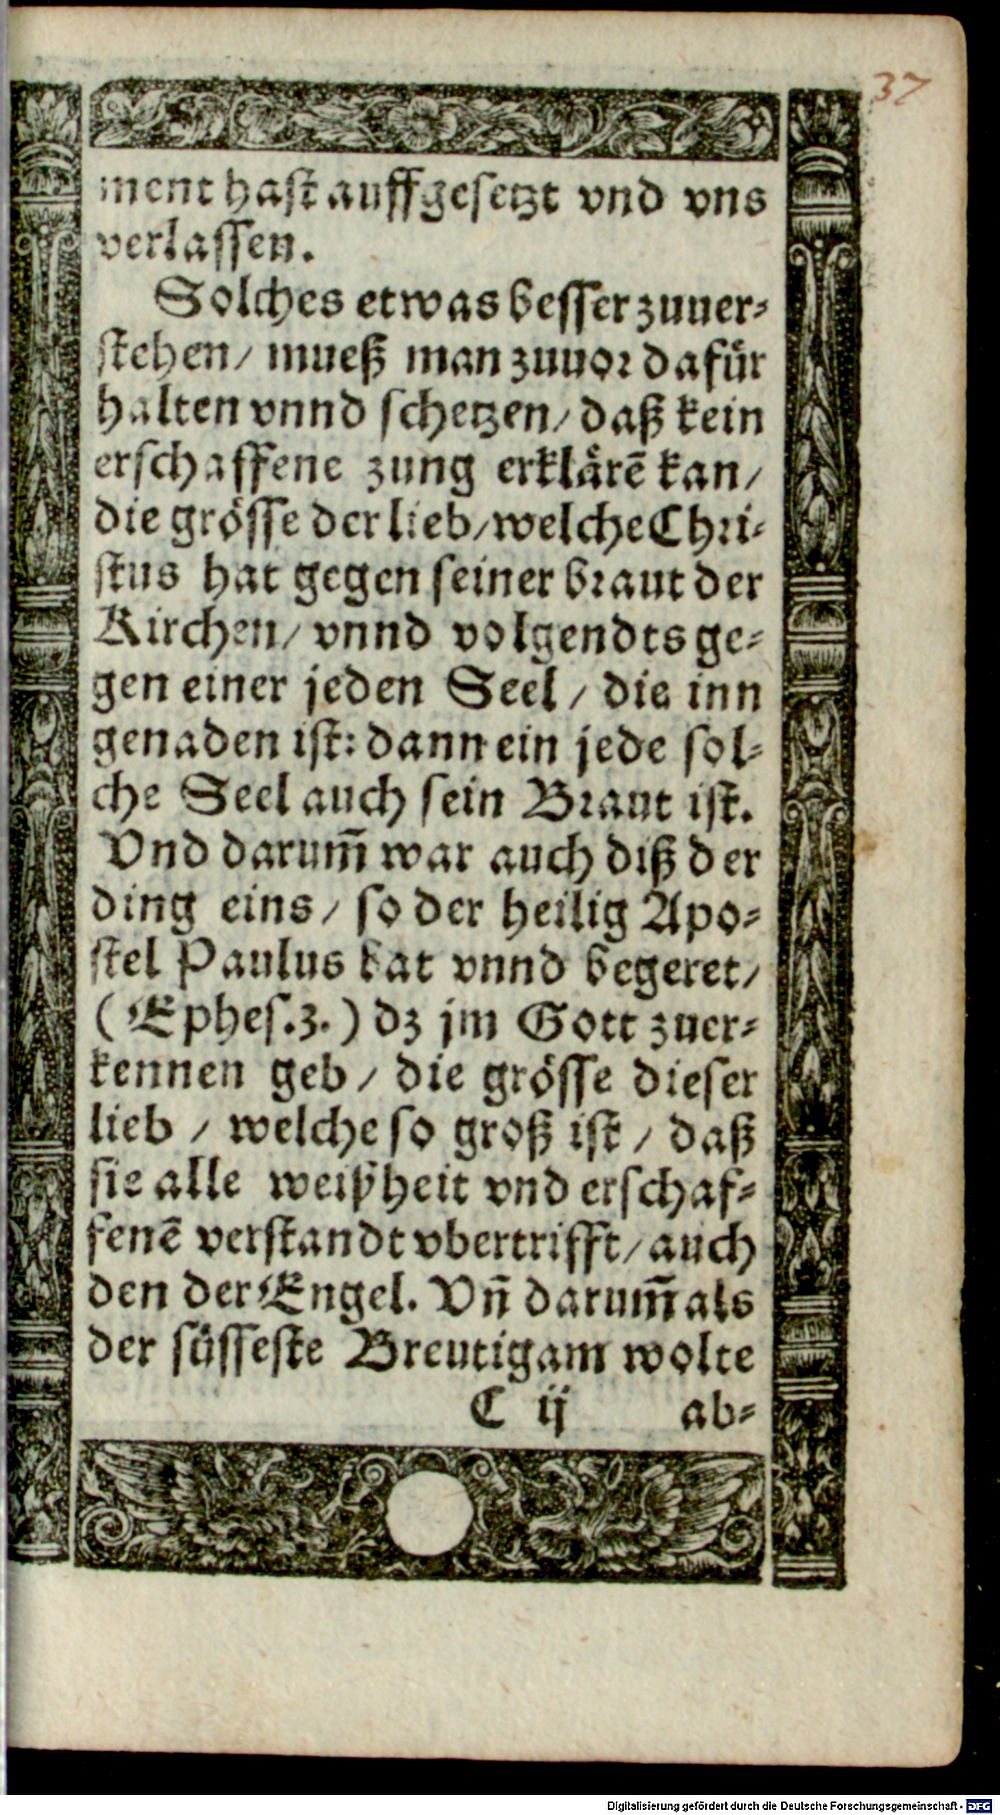 37
ment hast auffgesetzt vnd vns
verlassen.
Solches etwas besser zuuer-
stehen/ mueß man zuuor dafür
halten vnnd schetzen/ daß kein
erschaffene zung erklärē kan/
die grösse der lieb/ welche Chri-
stus hat gegen seiner braut der
Kirchen/ vnnd volgendts ge-
gen einer jeden Seel/ die inn
genaden ist: dann ein jede sol-
che Seel auch sein Braut ist.
Vnd darum̄ war auch diß der
ding eins/ so der heilig Apo-
stel Paulus bat vnnd begeret/
(Ephes.3.) dz jm Gott zuer-
kennen geb/ die grösse dieser
lieb/ welche so groß ist/ daß
sie alle weißheit vnd erschaf-
fenē verstandt vbertrifft/ auch
den der Engel. Vn̄ darum̄ als
der süsseste Breutigam wolte
C ij ab-
Digitalisierung gefördert durch die Deutsche Forschungsgemeinschaft - DFG